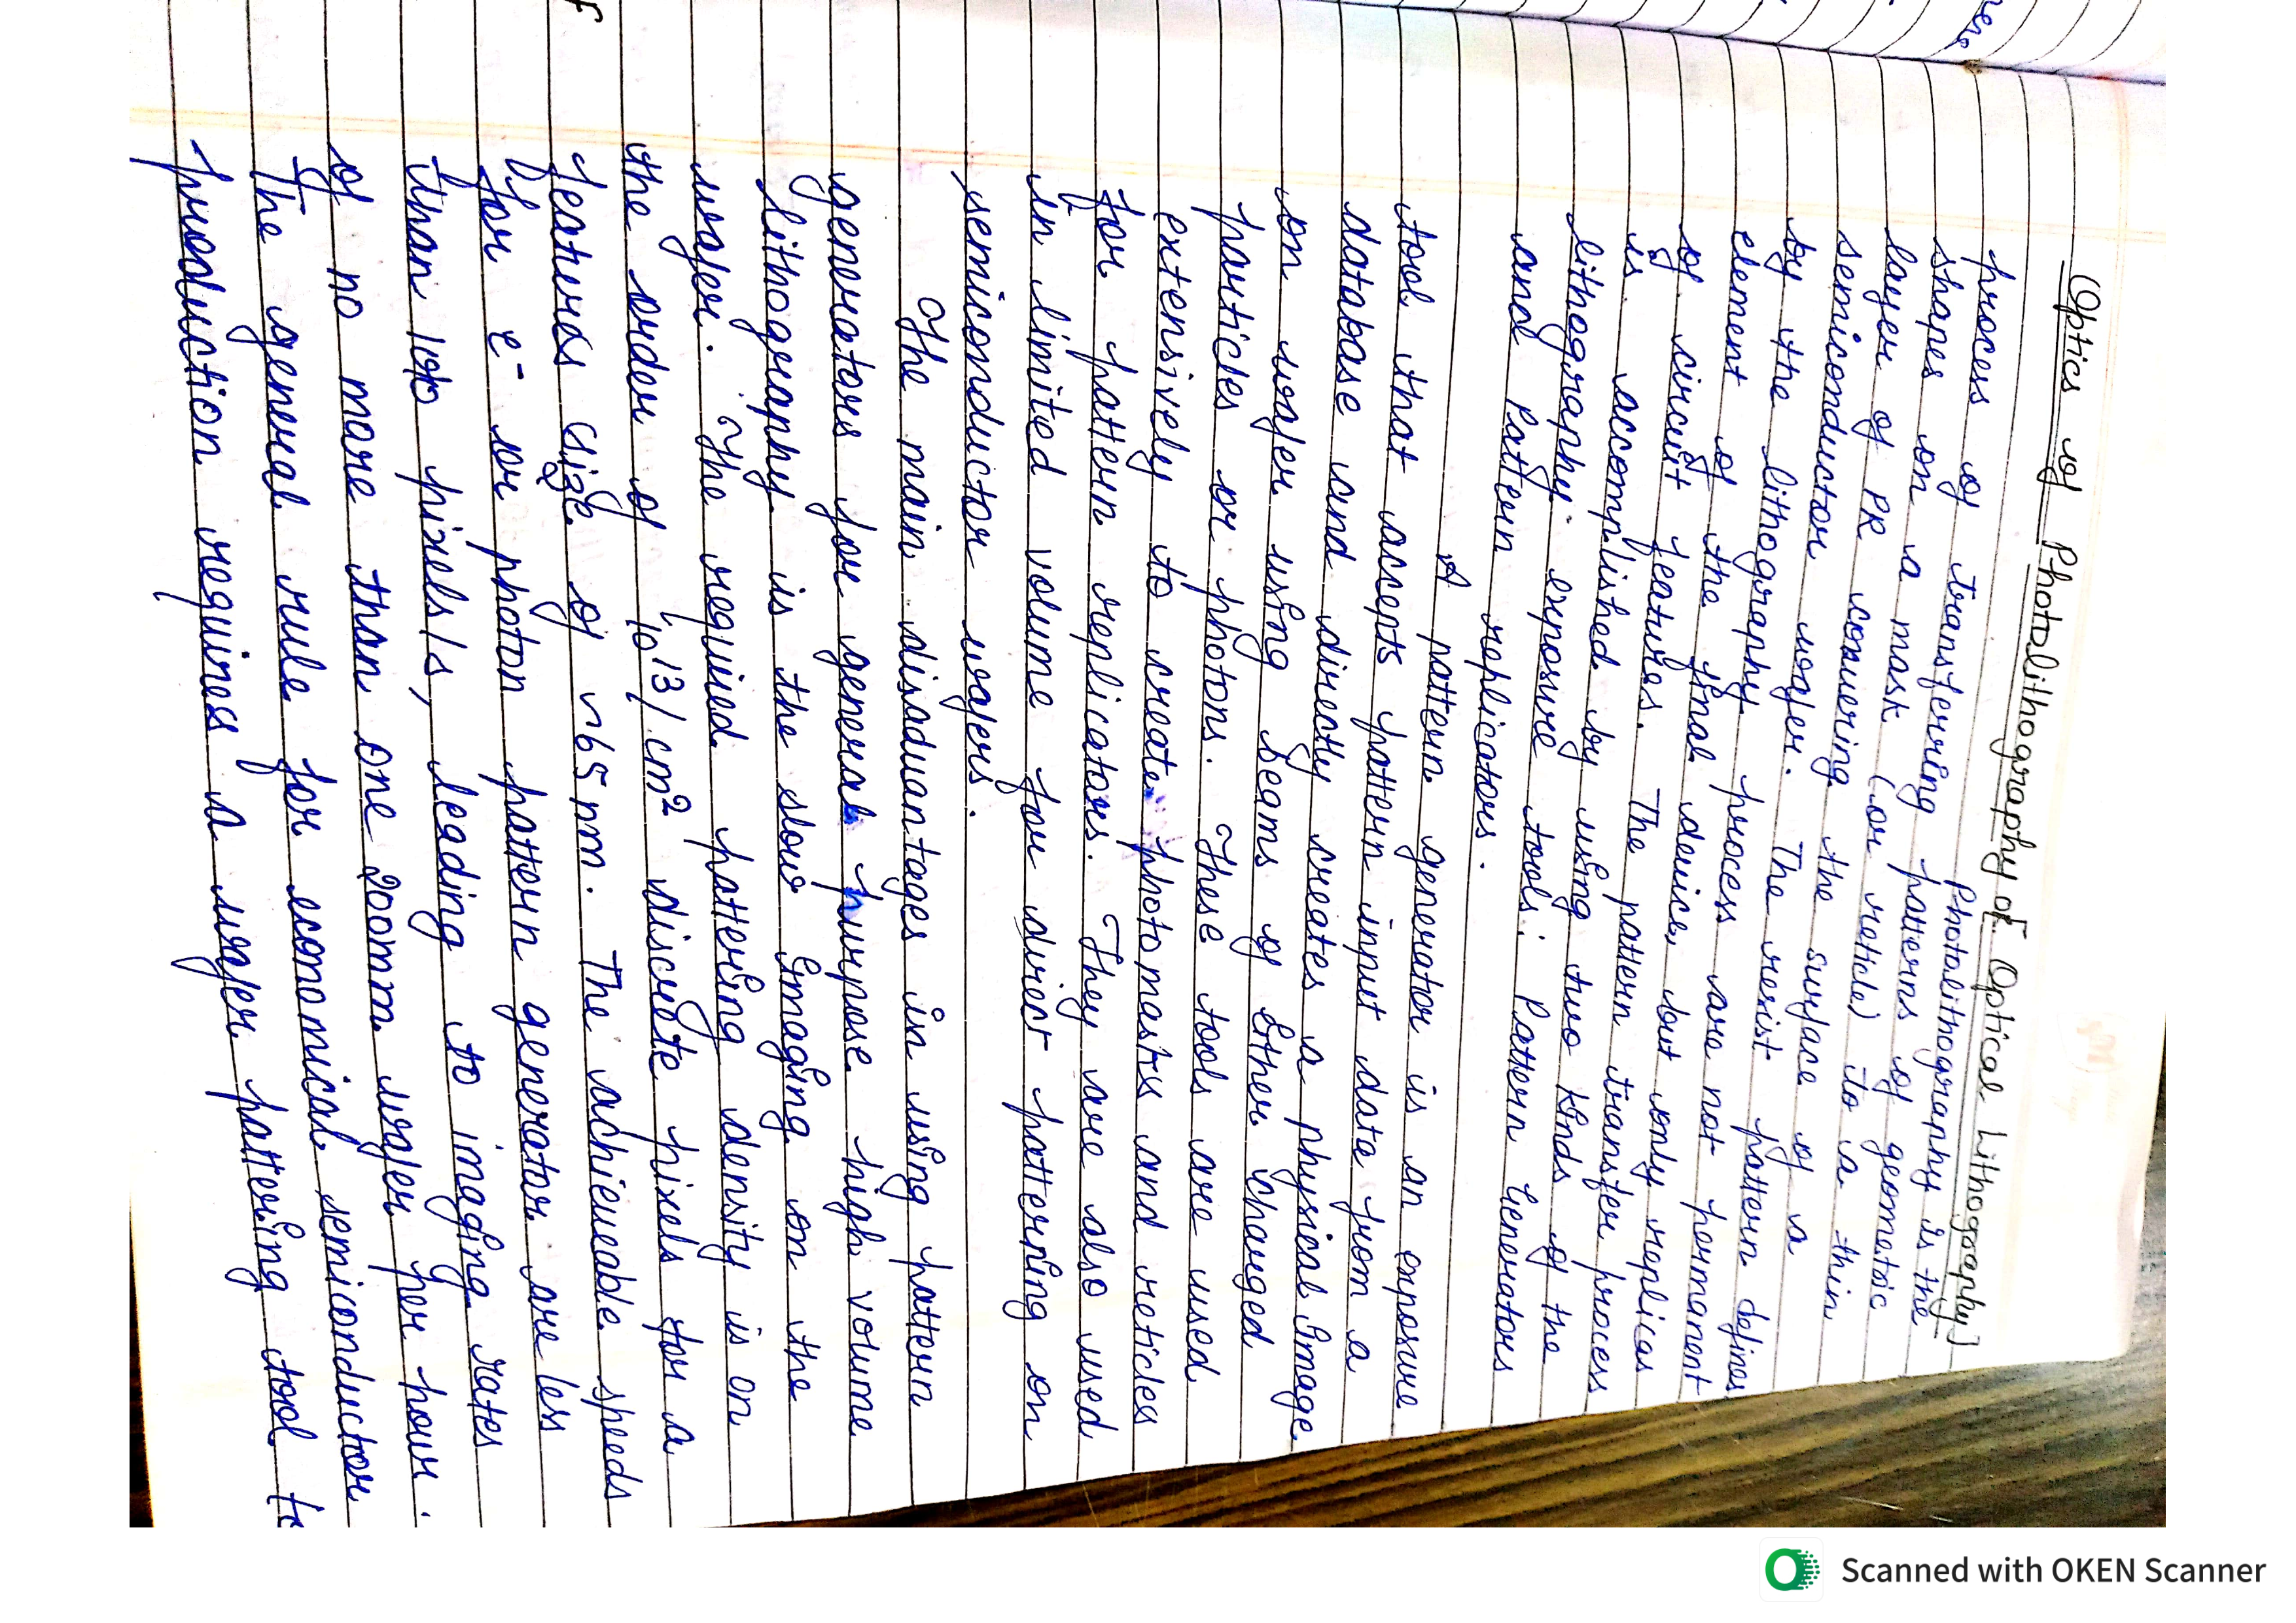 Optics of Photolithography or Optical Lithography]
Photolithography is the
process of transferring patterns of geometric
shapes on a mask (or reticle) to a thin
layer of PR convering the surface of a
semiconductor wafer. The resist pattern defines
by the lithography process are not permanent
element of the final device, but only replicas
of circuit features. The pattern transfer process
is accomplished by using two kinds of the
lithography exposure tools: Pattern Generators
and Pattern replicators.
A pattern generator is an exposure
tool that accepts pattern input data from a
database and directly creates a physical image
on wafer using beams of either charged
particles or photons. These tools are used
extensively to create photomasks and reticles
for pattern replicators. They are also used
in limited volume for direct patterning on
semiconductor wafers.
The main disadvantages in using pattern
generators for general purpose high volume
lithography is the slow imaging on the
wafer. The required pattering density is on
the order of 10^13/cm² discrete pixels for a
features size of ~65nm. The achieveable speeds
for e- or photon pattern generator are less
than pixels/s, leading to imaging rates
of no more than one 200mm wafer per hour.
The general rule for economical semiconductor
production requires a wafer pattering tool to
Scanned with OKEN Scanner